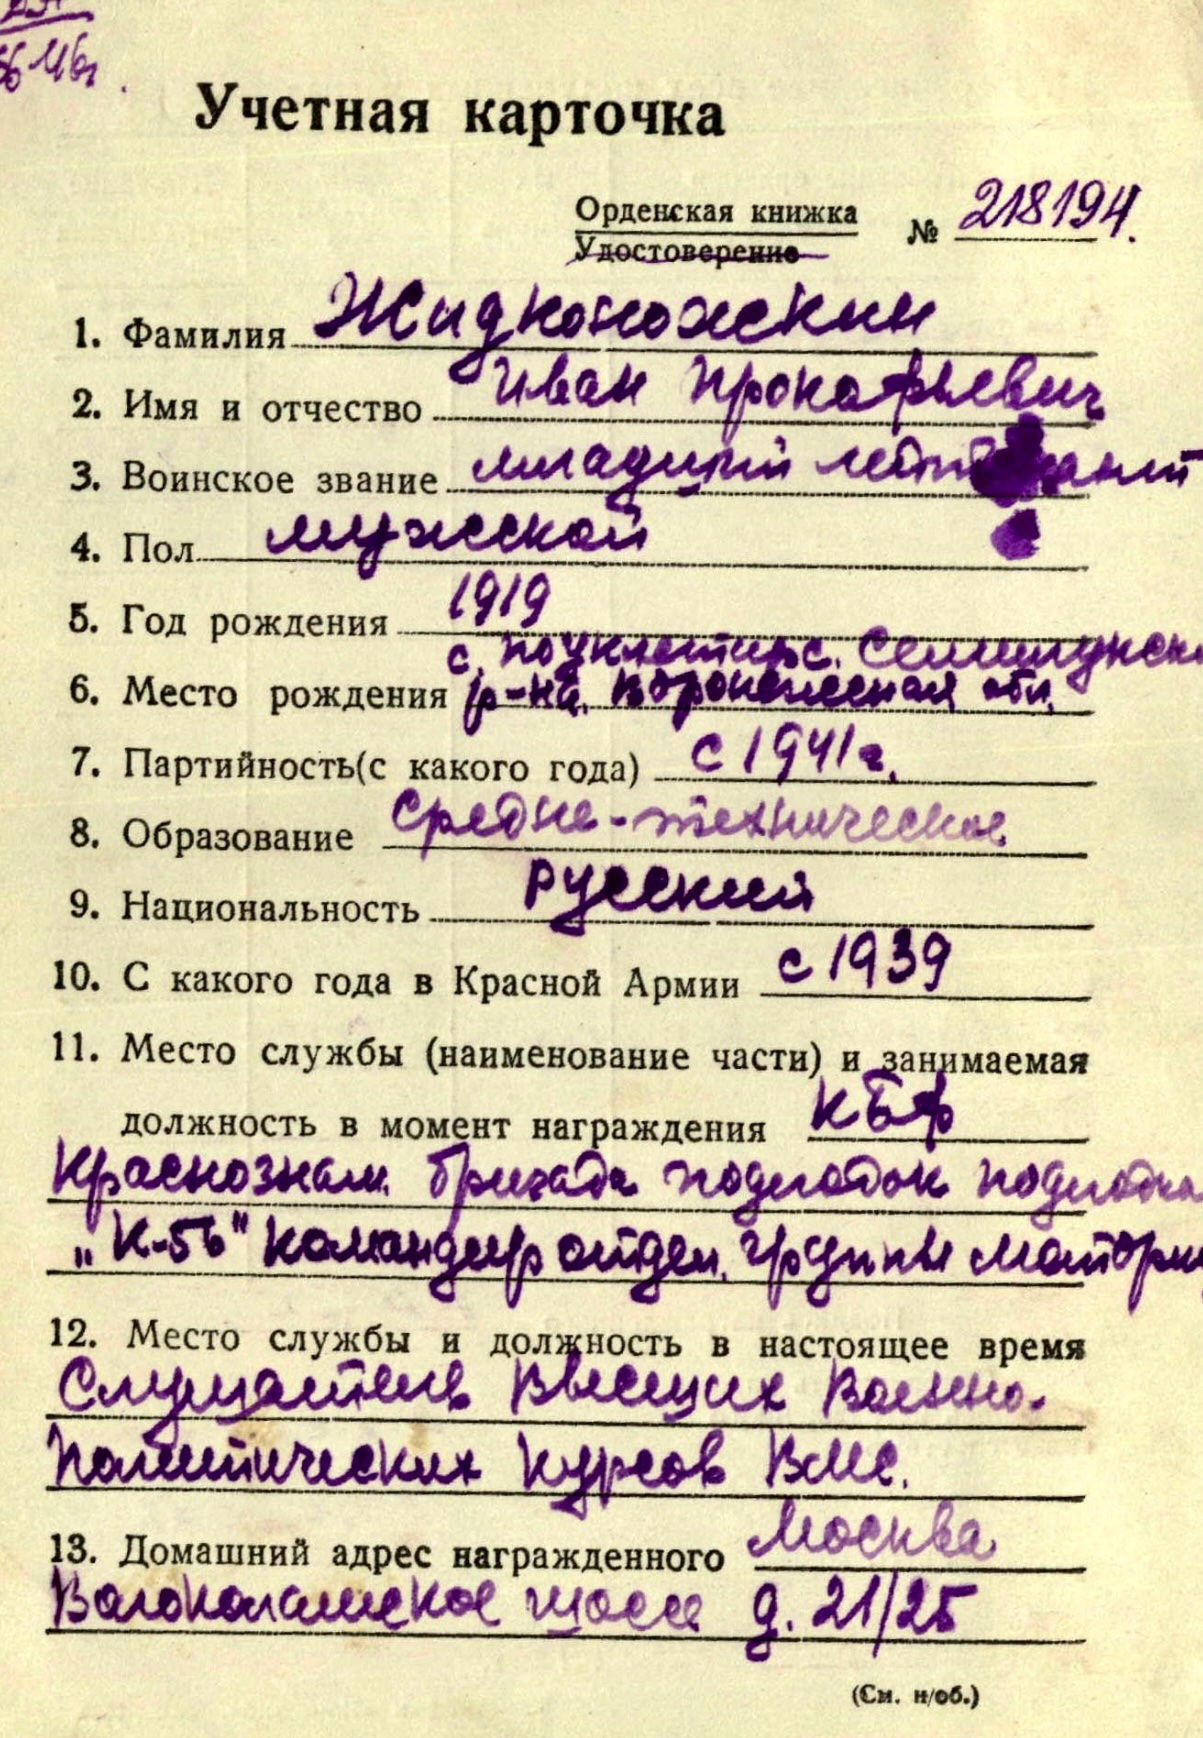 46г.
Учетная карточка
Орденская книжка
Удостоверение
№ 218194.
1. Фамилия Жидконожкин
2. Имя и отчество Иван Прокофьевич
3. Воинское звание младший лейтенант
4. Пол мужской
5. Год рождения 1919
с. Семилукск
6. Место рождения р-на, Воронежская обл.
7. Партийность(с какого года) с 1941г.
8. Образование средне-техническое
9. Национальность русский
10. С какого года в Красной Армии с 1939
11. Место службы (наименование части) и занимаемая
должность в момент награждения КБФ
Краснознам. бригада подлодок подлодка
„К-56" командир отдел. группы мотори
12. Место службы и должность в настоящее время
Слушатель Высших Военно-
политических курсов ВМС.
13. Домашний адрес награжденного Москва
Волоколамское шоссе д. 21/25
(См. н/об.)